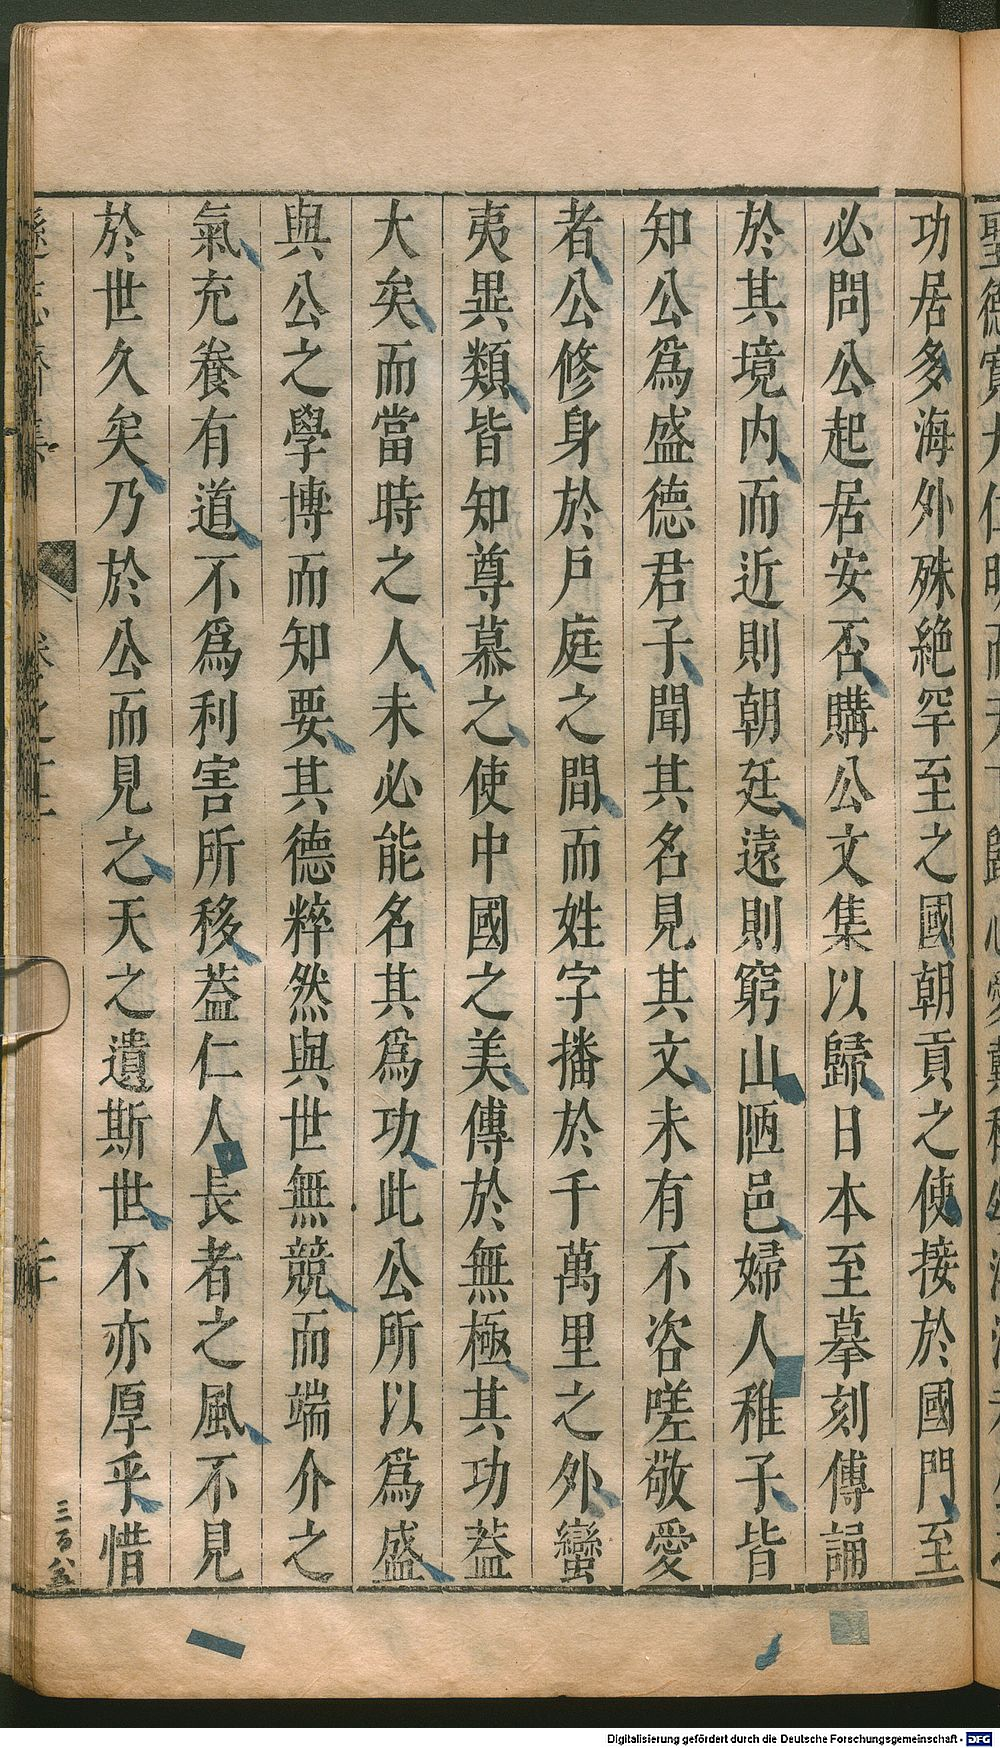 功居多海外殊絶罕至之國朝貢之使接於國門至
必問公起居安否購公文集以歸日本至摹刻傳誦
於其境内而近則朝廷遠則窮山陋邑婦人稚子皆
知公爲盛德君子聞其名見其文未有不咨嗟敬愛
者公修身於戶庭之間而姓字播於千萬里之外蠻
夷異類皆知尊慕之使中國之美傳於無極其功葢
大矣而當時之人未必能名其爲功此公所以爲盛
與公之學博而知要其德粹然與世無競而端介之
氣充養有道不爲利害所移葢仁人長者之風不見
於世久矣乃於公而見之天之遺斯世不亦厚乎惜
三百八五
Digitalisierung gefördert durch die Deutsche Forschungsgemeinschaft - DFG